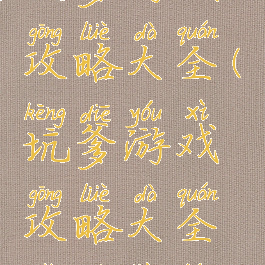 gōng lüè dà quán
攻略大全(
kēng diē yóu xì
坑爹游戏
gōng lüè dà quán
攻略大全